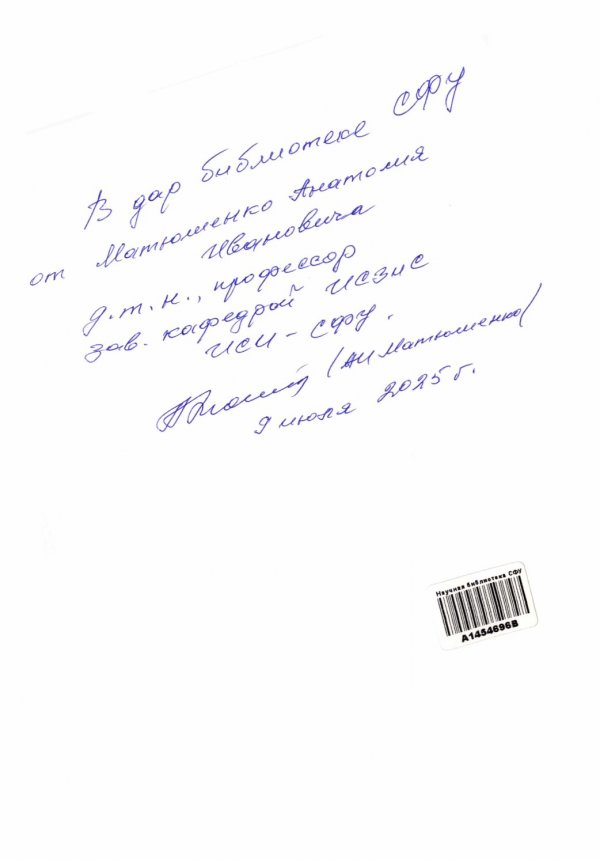 В дар библиотеке СФУ
от Матюшенко Анатолия
Ивановича
д.т.н., профессор
зав. кафедрой ИСЗиС
ИСИ-СФУ.
(АИ Матюшенко)
9 июля 2025 г.
Научная библиотека СФУ
A1454696B